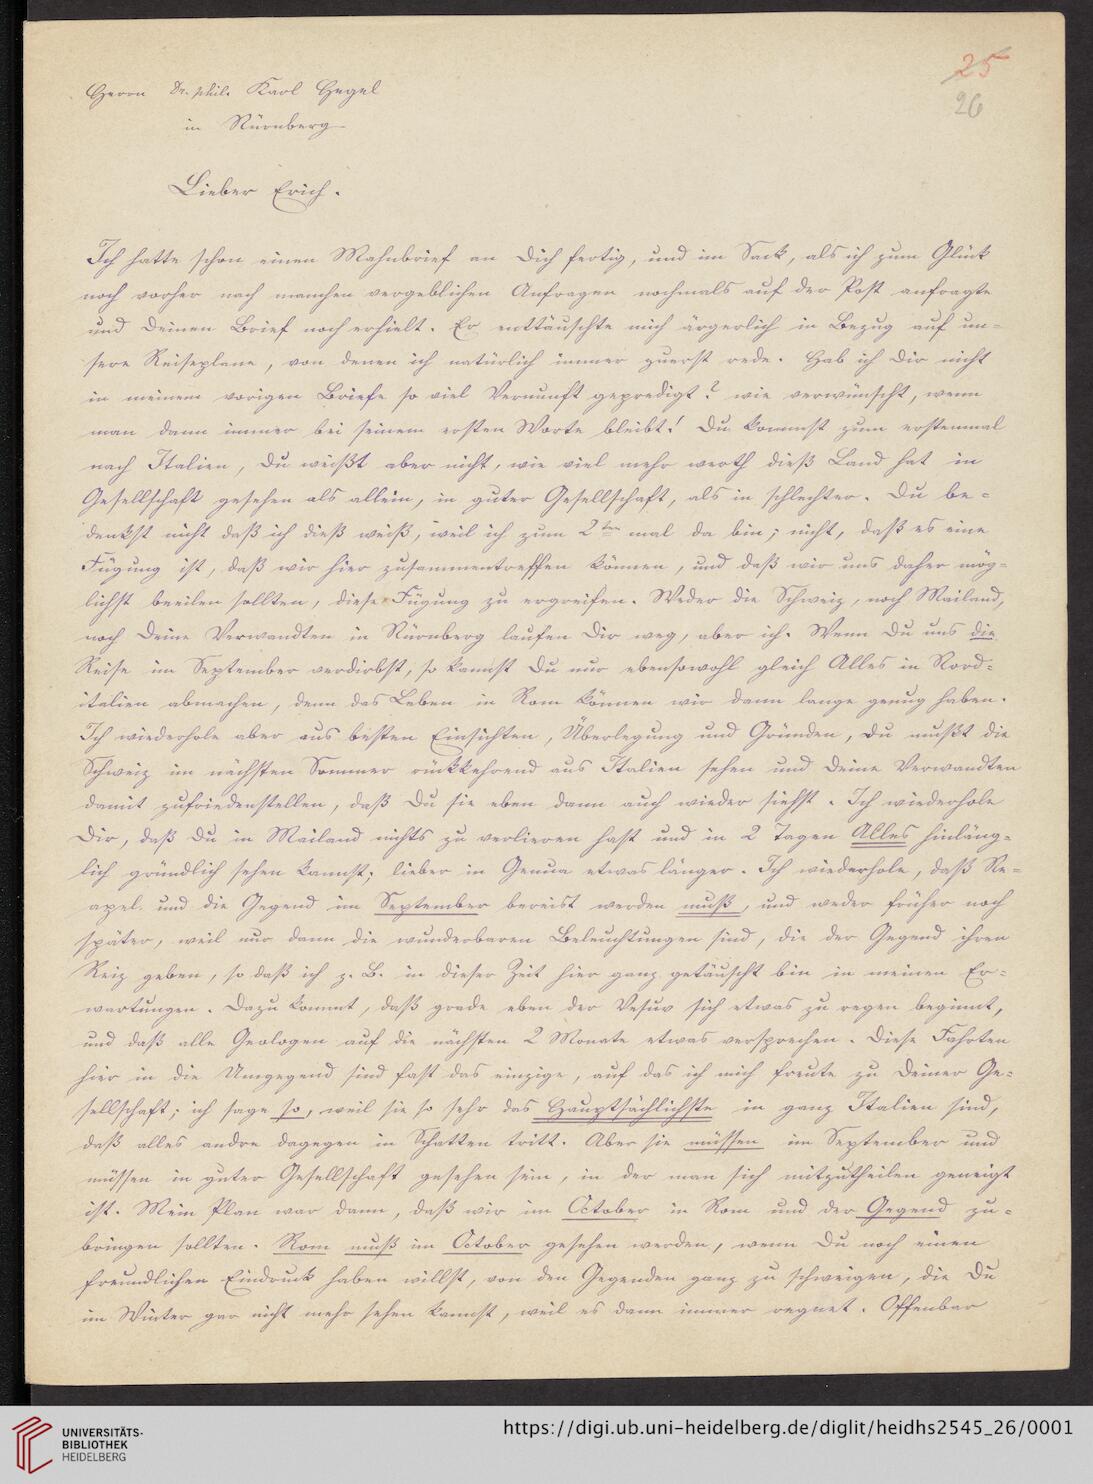 25
26
Herrn Dr. phil. Karl Hegel
in Nürnberg
Lieber Erich.
Ich hatte schon einen Mahnbrief an Dich fertig, und im Sack, als ich zum Glück
noch vorher nach manchen vergeblichen Anfragen nochmals auf der Post anfragte
und Deinen Brief noch erhielt. Er enttäuschte mich ärgerlich in Bezug auf un-
sere Reiseplane, von denen ich natürlich immer zuerst rede. Hab ich Dir nicht
in meinem vorigen Briefe so viel Vernunft gepredigt? wie verwünscht, wenn
man dann immer bei seinem ersten Worte bleibt! Du kommst zum erstenmal
nach Italien, Du weißt aber nicht, wie viel mehr werth dieß Land hat in
Gesellschaft gesehen als allein, in guter Gesellschaft, als in schlechter. Du be-
denkst nicht daß ich dieß weiß, weil ich zum 2ten mal da bin; nicht, daß es eine
Fügung ist, daß wir hier zusammentreffen können, und daß wir uns daher mög-
lichst beeilen sollten, diese Fügung zu ergreifen. Weder die Schweiz, noch Mailand,
noch Deine Verwandten in Nürnberg laufen Dir weg, aber ich. Wenn Du uns die
Reise im September verdirbst, so kannst Du nur ebensowohl gleich Alles in Nord-
italien abmachen, denn das Leben in Rom können wir dann lange genug haben.
Ich wiederhole aber aus besten Einsichten, Überlegung und Gründen, Du mußt die
Schweiz im nächsten Sommer rückkehrend aus Italien sehen und Deine Verwandten
damit zufriedenstellen, daß Du sie eben dann auch wieder siehst. Ich wiederhole
Dir, daß Du in Mailand nichts zu verlieren hast und in 2 Tagen Alles hinläng-
lich gründlich sehen kannst; lieber in Genua etwas länger. Ich wiederhole, daß Ne-
apel und die Gegend im September bereist werden muß, und weder früher noch
später, weil nur dann die wunderbaren Beleuchtungen sind, die der Gegend ihren
Reiz geben, so daß ich z. B. in dieser Zeit hier ganz getäuscht bin in meinen Er-
wartungen. Dazu kommt, daß grade eben der Vesuv sich etwas zu regen beginnt,
und daß alle Geologen auf die nächsten 2 Monate etwas versprechen. Diese Fahrten
hier in die Umgegend sind fast das einzige, auf das ich mich freute zu Deiner Ge-
sellschaft; ich sage so, weil sie so sehr das Hauptsächlichste in ganz Italien sind,
daß alles andre dagegen in Schatten tritt. Aber sie müssen im September und
müssen in guter Gesellschaft gesehen sein, in der man sich mitzutheilen geneigt
ist. Mein Plan war dann, daß wir im October in Rom und der Gegend zu-
bringen sollten. Rom muß im October gesehen werden, wenn Du noch einen
freundlichen Eindruck haben willst, von den Gegenden ganz zu schweigen, die Du
im Winter gar nicht mehr sehen kannst, weil es dann immer regnet. Offenbar
UNIVERSITÄTS-
BIBLIOTHEK
HEIDELBERG
https://digi.ub.uni-heidelberg.de/diglit/heidhs2545_26/0001